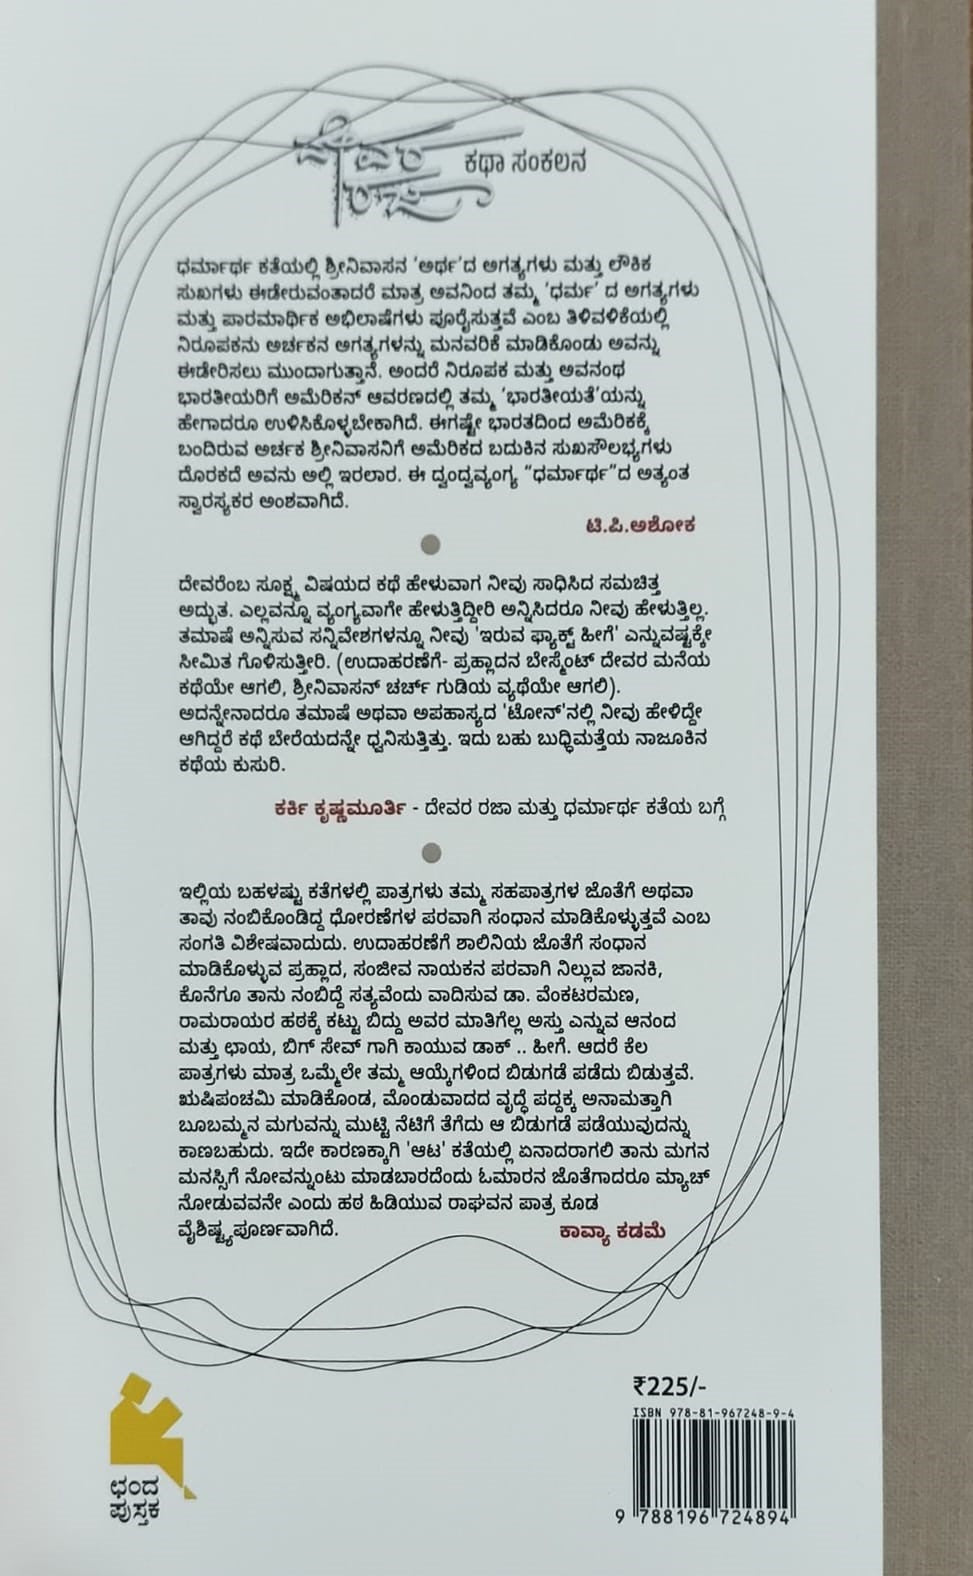 ದೇವರ
ರಜಾ
ಕಥಾ ಸಂಕಲನ
ಧರ್ಮಾರ್ಥ ಕತೆಯಲ್ಲಿ ಶ್ರೀನಿವಾಸನ 'ಅರ್ಥ'ದ ಅಗತ್ಯಗಳು ಮತ್ತು ಲೌಕಿಕ
ಸುಖಗಳು ಈಡೇರುವಂತಾದರೆ ಮಾತ್ರ ಅವನಿಂದ ತಮ್ಮ 'ಧರ್ಮ' ದ ಅಗತ್ಯಗಳು
ಮತ್ತು ಪಾರಮಾರ್ಥಿಕ ಅಭಿಲಾಷೆಗಳು ಪೂರೈಸುತ್ತವೆ ಎಂಬ ತಿಳಿವಳಿಕೆಯಲ್ಲಿ
ನಿರೂಪಕನು ಅರ್ಚಕನ ಅಗತ್ಯಗಳನ್ನು ಮನವರಿಕೆ ಮಾಡಿಕೊಂಡು ಅವನ್ನು
ಈಡೇರಿಸಲು ಮುಂದಾಗುತ್ತಾನೆ. ಅಂದರೆ ನಿರೂಪಕ ಮತ್ತು ಅವನಂಥ
ಭಾರತೀಯರಿಗೆ ಅಮೆರಿಕನ್ ಆವರಣದಲ್ಲಿ ತಮ್ಮ 'ಭಾರತೀಯತೆ'ಯನ್ನು
ಹೇಗಾದರೂ ಉಳಿಸಿಕೊಳ್ಳಬೇಕಾಗಿದೆ. ಈಗಷ್ಟೇ ಭಾರತದಿಂದ ಅಮೆರಿಕಕ್ಕೆ
ಬಂದಿರುವ ಅರ್ಚಕ ಶ್ರೀನಿವಾಸನಿಗೆ ಅಮೆರಿಕದ ಬದುಕಿನ ಸುಖಸೌಲಭ್ಯಗಳು
ದೊರಕದೆ ಅವನು ಅಲ್ಲಿ ಇರಲಾರ. ಈ ದ್ವಂದ್ವವ್ಯಂಗ್ಯ “ಧರ್ಮಾರ್ಥ”ದ ಅತ್ಯಂತ
ಸ್ವಾರಸ್ಯಕರ ಅಂಶವಾಗಿದೆ.
ಟಿ.ಪಿ.ಅಶೋಕ
ದೇವರೆಂಬ ಸೂಕ್ಷ್ಮ ವಿಷಯದ ಕಥೆ ಹೇಳುವಾಗ ನೀವು ಸಾಧಿಸಿದ ಸಮಚಿತ್ತ
ಅದ್ಭುತ. ಎಲ್ಲವನ್ನೂ ವ್ಯಂಗ್ಯವಾಗೇ ಹೇಳುತ್ತಿದ್ದೀರಿ ಅನ್ನಿಸಿದರೂ ನೀವು ಹೇಳುತ್ತಿಲ್ಲ.
ತಮಾಷೆ ಅನ್ನಿಸುವ ಸನ್ನಿವೇಶಗಳನ್ನೂ ನೀವು 'ಇರುವ ಫ್ಯಾಕ್ಟ್ ಹೀಗೆ' ಎನ್ನುವಷ್ಟಕ್ಕೇ
ಸೀಮಿತ ಗೊಳಿಸುತ್ತೀರಿ. (ಉದಾಹರಣೆಗೆ- ಪ್ರಹ್ಲಾದನ ಬೇಸ್ಮೆಂಟ್ ದೇವರ ಮನೆಯ
ಕಥೆಯೇ ಆಗಲಿ, ಶ್ರೀನಿವಾಸನ್ ಚರ್ಚ್ ಗುಡಿಯ ವ್ಯಥೆಯೇ ಆಗಲಿ).
ಅದನ್ನೇನಾದರೂ ತಮಾಷೆ ಅಥವಾ ಅಪಹಾಸ್ಯದ 'ಟೋನ್'ನಲ್ಲಿ ನೀವು ಹೇಳಿದ್ದೇ
ಆಗಿದ್ದರೆ ಕಥೆ ಬೇರೆಯದನ್ನೇ ಧ್ವನಿಸುತ್ತಿತ್ತು. ಇದು ಬಹು ಬುದ್ಧಿಮತ್ತೆಯ ನಾಜೂಕಿನ
ಕಥೆಯ ಕುಸುರಿ.
ಕರ್ಕಿ ಕೃಷ್ಣಮೂರ್ತಿ - ದೇವರ ರಜಾ ಮತ್ತು ಧರ್ಮಾರ್ಥ ಕತೆಯ ಬಗ್ಗೆ
ಇಲ್ಲಿಯ ಬಹಳಷ್ಟು ಕತೆಗಳಲ್ಲಿ ಪಾತ್ರಗಳು ತಮ್ಮ ಸಹಪಾತ್ರಗಳ ಜೊತೆಗೆ ಅಥವಾ
ತಾವು ನಂಬಿಕೊಂಡಿದ್ದ ಧೋರಣೆಗಳ ಪರವಾಗಿ ಸಂಧಾನ ಮಾಡಿಕೊಳ್ಳುತ್ತವೆ ಎಂಬ
ಸಂಗತಿ ವಿಶೇಷವಾದುದು. ಉದಾಹರಣೆಗೆ ಶಾಲಿನಿಯ ಜೊತೆಗೆ ಸಂಧಾನ
ಮಾಡಿಕೊಳ್ಳುವ ಪ್ರಹ್ಲಾದ, ಸಂಜೀವ ನಾಯಕನ ಪರವಾಗಿ ನಿಲ್ಲುವ ಜಾನಕಿ,
ಕೊನೆಗೂ ತಾನು ನಂಬಿದ್ದೆ ಸತ್ಯವೆಂದು ವಾದಿಸುವ ಡಾ. ವೆಂಕಟರಮಣ,
ರಾಮರಾಯರ ಹಠಕ್ಕೆ ಕಟ್ಟು ಬಿದ್ದು ಅವರ ಮಾತಿಗೆಲ್ಲ ಅಸ್ತು ಎನ್ನುವ ಆನಂದ
ಮತ್ತು ಛಾಯ, ಬಿಗ್ ಸೇವ್ ಗಾಗಿ ಕಾಯುವ ಡಾಕ್ .. ಹೀಗೆ. ಆದರೆ ಕೆಲ
ಪಾತ್ರಗಳು ಮಾತ್ರ ಒಮ್ಮೆಲೇ ತಮ್ಮ ಆಯ್ಕೆಗಳಿಂದ ಬಿಡುಗಡೆ ಪಡೆದು ಬಿಡುತ್ತವೆ.
ಋಷಿಪಂಚಮಿ ಮಾಡಿಕೊಂಡ, ಮೊಂಡುವಾದದ ವೃದ್ಧೆ ಪದ್ದಕ್ಕ ಅನಾಮತ್ತಾಗಿ
ಬೂಬಮ್ಮನ ಮಗುವನ್ನು ಮುಟ್ಟಿ ನೆಟಿಗೆ ತೆಗೆದು ಆ ಬಿಡುಗಡೆ ಪಡೆಯುವುದನ್ನು
ಕಾಣಬಹುದು. ಇದೇ ಕಾರಣಕ್ಕಾಗಿ 'ಆಟ' ಕತೆಯಲ್ಲಿ ಏನಾದರಾಗಲಿ ತಾನು ಮಗನ
ಮನಸ್ಸಿಗೆ ನೋವನ್ನುಂಟು ಮಾಡಬಾರದೆಂದು ಓಮಾರನ ಜೊತೆಗಾದರೂ ಮ್ಯಾಚ್
ನೋಡುವವನೇ ಎಂದು ಹಠ ಹಿಡಿಯುವ ರಾಘವನ ಪಾತ್ರ ಕೂಡ
ವೈಶಿಷ್ಟ್ಯಪೂರ್ಣವಾಗಿದೆ.
ಕಾವ್ಯಾ ಕಡಮೆ
ಛಂದ
ಪುಸ್ತಕ
₹225/-
ISBN 978-81-967248-9-4
9 788196 724894